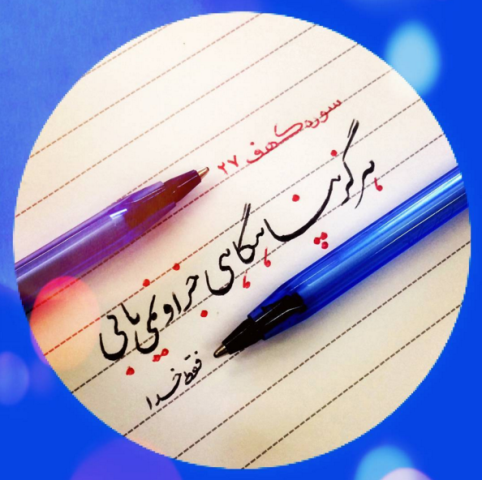 سوره کهف ۲۷
هرگز پناهگاهی جز او نمی یابی
فقط خدا